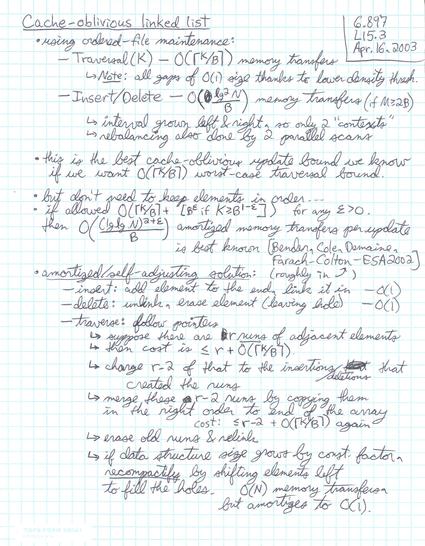 Cache-oblivious linked list
6.897
L15.3
Apr. 16, 2003
• using ordered-file maintenance:
— Traversal(K) — O(⌈K/B⌉) memory transfers
↳ Note: all gaps of O(1) size thanks to lower density thresh.
— Insert/Delete — O(lg² N / B) memory transfers (if M≥2B)
↳ interval grown left & right, so only 2 "contexts"
↳ rebalancing also done by 2 parallel scans
• this is the best cache-oblivious update bound we know
if we want O(⌈K/B⌉) worst-case traversal bound.
• but don't need to keep elements in order...
• if allowed O(⌈K/B⌉ + [B^ε if K≥B^{1-ε}]) for any ε>0.
then O((lg lg N)^{2+ε} / B) amortized memory transfers per update
is best known [Bender, Cole, Demaine,
Farach-Colton - ESA 2002]
• amortized/self-adjusting solution: (roughly in ⤴)
— insert: add element to the end, link it in — O(1)
— delete: unlink, erase element (leaving hole) — O(1)
— traverse: follow pointers
↳ suppose there are r runs of adjacent elements
↳ then cost is ≤ r + O(⌈K/B⌉)
↳ charge r-2 of that to the insertions/deletions that
created the runs
↳ merge these r-2 runs by copying them
in the right order to end of the array
cost: ≤ r-2 + O(⌈K/B⌉) again
↳ erase old runs & relink
↳ if data structure size grows by const. factor,
recompactify by shifting elements left
to fill the holes.
O(N) memory transfers
but amortizes to O(1).